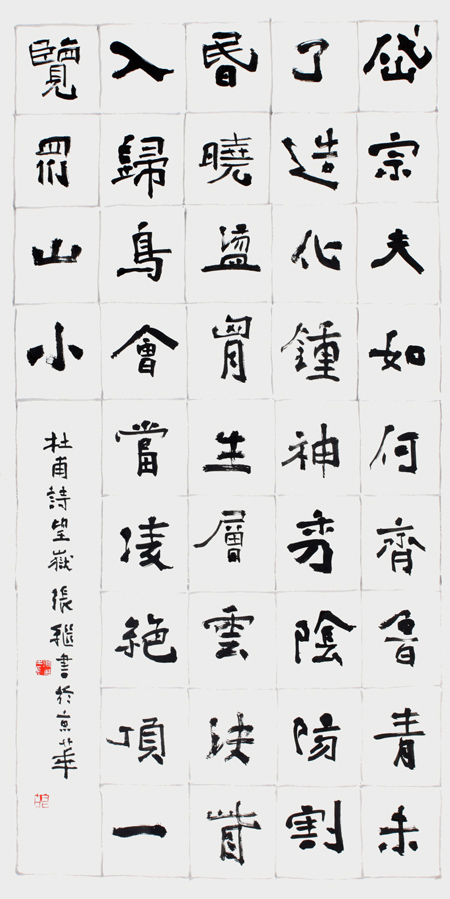 岱宗夫如何齊魯青未
了造化鍾神秀陰陽割
昏曉盪胷生層雲決眥
入歸鳥會當凌絕頂一
覽眾山小
杜甫詩望嶽張繼書於京華